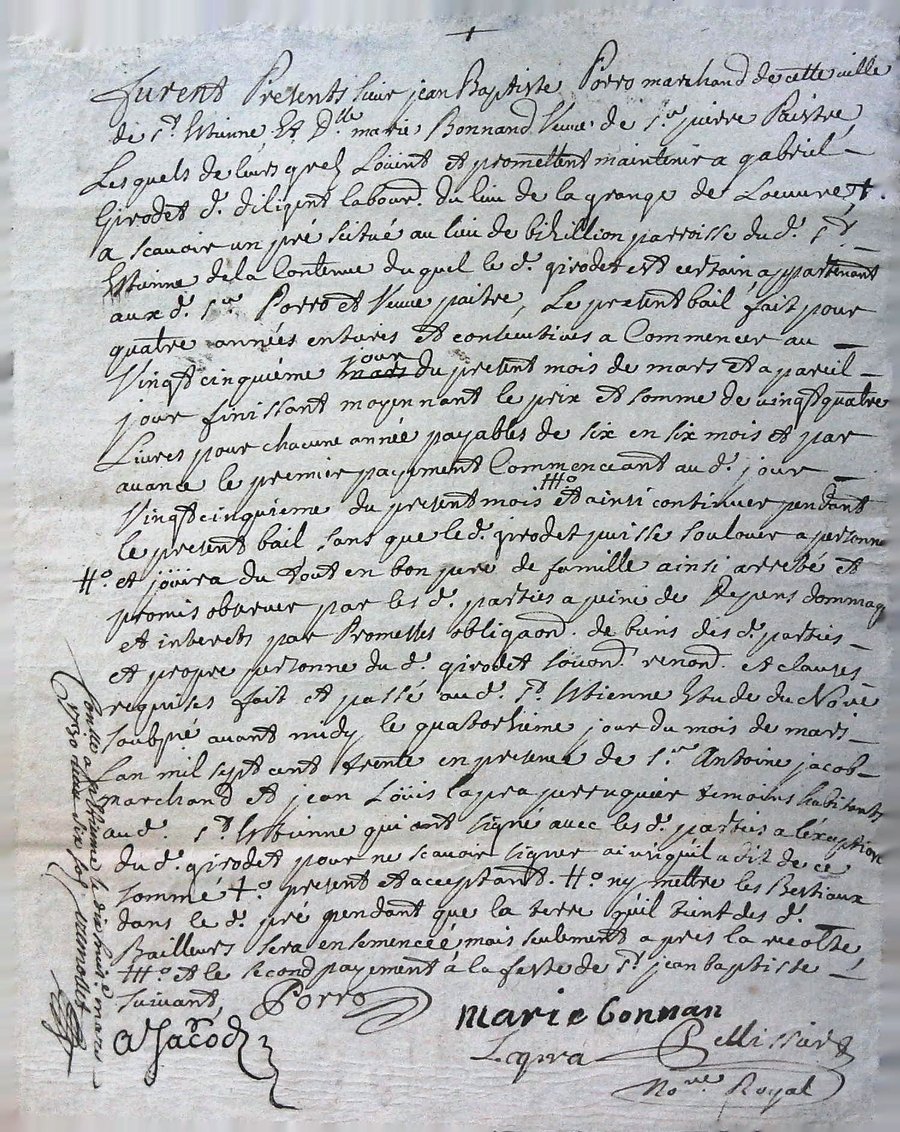 +
Furent Presents sieur jean Baptiste Porro marchand de cette ville
de St. Estienne Et Dlle marie Bonnand Veuve de Sr. pierre Paistre,
Lesquels de leurs grés Loüent et promettent maintenir a gabriel –
Girodet d. diligent labour. du lieu de la grange de Loeuvre +.
a scavoir un pré scitué au lieu de parroisse du d. St –
Estienne de la Contenue duquel le d. girodet est certain, appartenant
aux d. Sr. Porro et Veuve paitre, Le present bail fait pour
quatre années entieres et consecutives a Commencer au –
Vingt cinquiéme jour du present mois de mars et a pareil –
jour finissant moyennant le prix et somme de vingt quatre
Livres pour chacune année payables de six en six mois et par
avance le premier payement Commencant au d. jour –
Vingt cinquiéme du present mois ##o et ainsi continuer pendant
le present bail sans que le d. girodet puisse soulouer a personne
#o et joüira du tout en bon pere de famille ainsi arresté et
promis observer par les d. parties a peine de Depens dommag
et interets par Promesses obligaond. de biens des d. parties –
et propre personne du d. girodet renond. et clauses –
requises fait et passé au d. St. Estienne Etude du No.re
soubné avant midy le quatorzieme jour du mois de mars –
Lan mil sept cent trente en presence de Sr. Antoine jacob –
marchand et jean Loüis lapra perruquier temoins habitants
au d. St Estienne qui ont signé avec les d. parties a l'exeption
du d. girodet pour ne scavoir signer ainsi quil a dit de ce
sommé +o present et acceptant. #o ny mettre les Bestiaux
dans le d. pré pendant que la terre quil tient des d.
Bailleurs sera ensemencée mais seulement apres la recolte,
##o et le second payement à la feste de St. jean baptiste –
suivant,
Porro
marie bonnan
a Jacob
Lapra
Pellissier
No.re Royal
Controllé a St Estienne le dix huit.e mars –
1730 receu six sols